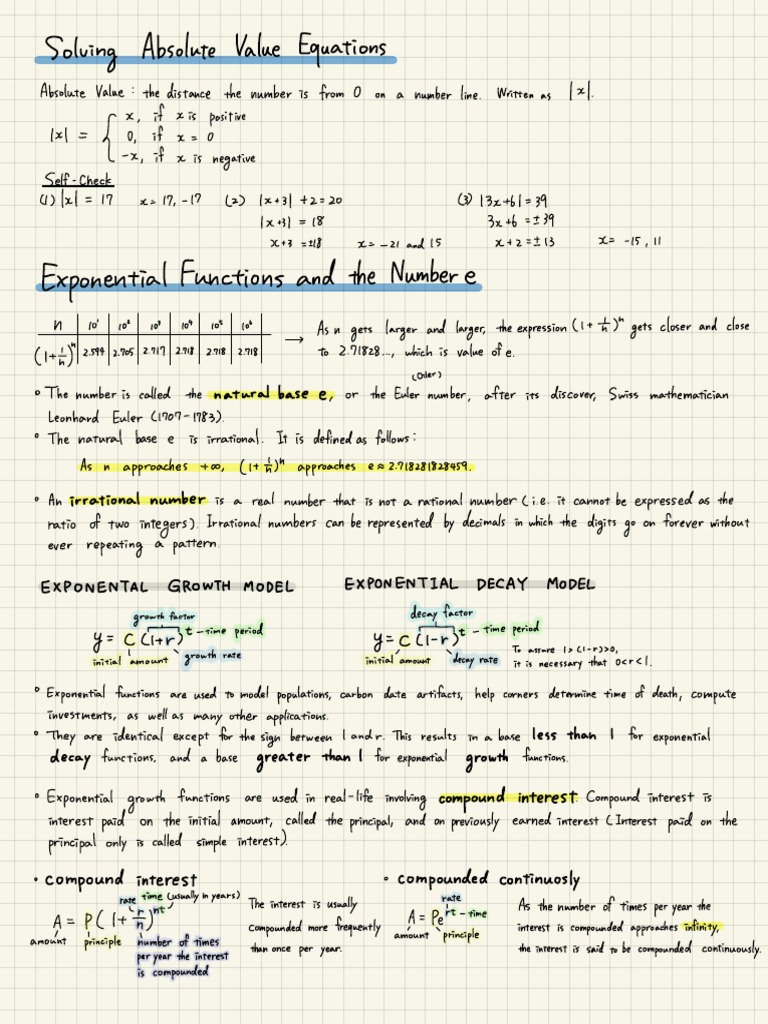 Solving Absolute Value Equations
Absolute Value : the distance the number is from 0 on a number line. Written as |x|.
|x| = { x, if x is positive
0, if x = 0
-x, if x is negative
Self-Check
(1) |x| = 17 x = 17, -17 (2) |x+3| + 2 = 20 (3) |3x+6| = 39
|x+3| = 18 3x+6 = ±39
x+3 = ±18 x = -21 and 15 x+2 = ±13 x = -15, 11
Exponential Functions and the Number e
n 10¹ 10² 10³ 10⁴ 10⁵ 10⁶
(1+1/n)ⁿ 2.594 2.705 2.717 2.718 2.718 2.718
→ As n gets larger and larger, the expression (1+1/n)ⁿ gets closer and close
to 2.71828..., which is value of e.
(Oiler)
• The number is called the natural base e, or the Euler number, after its discover, Swiss mathematician
Leonhard Euler (1707-1783).
• The natural base e is irrational. It is defined as follows:
As n approaches +∞, (1+1/n)ⁿ approaches e ≈ 2.718281828459.
• An irrational number is a real number that is not a rational number (i.e. it cannot be expressed as the
ratio of two integers). Irrational numbers can be represented by decimals in which the digits go on forever without
ever repeating a pattern.
EXPONENTAL GROWTH MODEL
growth factor
y = C(1+r)^t - time period
initial amount growth rate
EXPONENTIAL DECAY MODEL
decay factor
y = C(1-r)^t - time period
initial amount decay rate
To assure 1>(1-r)>0,
it is necessary that 0<r<1.
• Exponential functions are used to model populations, carbon date artifacts, help corners determine time of death, compute
investments, as well as many other applications.
• They are identical except for the sign between 1 and r. This results in a base less than 1 for exponential
decay functions, and a base greater than 1 for exponential growth functions.
• Exponential growth functions are used in real-life involving compound interest. Compound interest is
interest paid on the initial amount, called the principal, and on previously earned interest (Interest paid on the
principal only is called simple interest).
• compound interest
rate time (usually in years)
A = P(1+r/n)^nt
amount principle number of times
per year the interest
is compounded
The interest is usually
compounded more frequently
than once per year.
• compounded continuosly
rate
A = Pe^rt - time
amount principle
As the number of times per year the
interest is compounded approaches infinity,
the interest is said to be compounded continuously.